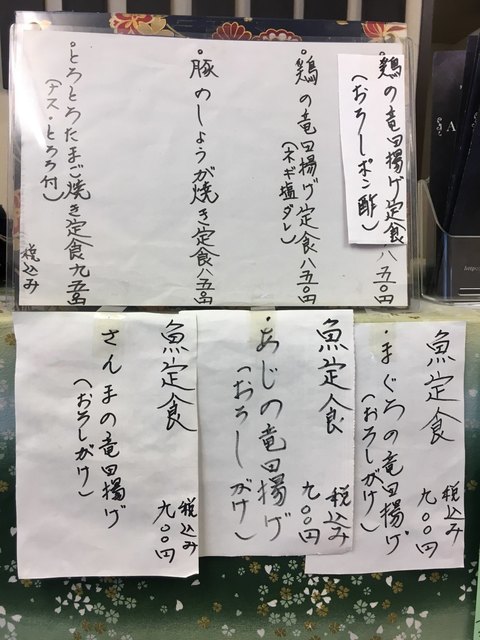 ・鶏の竜田揚げ定食八五〇円
(おろしポン酢)
・鶏の竜田揚げ定食八五〇円
(ネギ塩ダレ)
・豚のしょうが焼き定食八五〇円
・とろとろたまご焼き定食九五〇円
(ナス・とろろ付)
税込み
魚定食
・まぐろの竜田揚げ
(おろしがけ)
税込み
九〇〇円
魚定食
・あじの竜田揚げ
(おろしがけ)
税込み
九〇〇円
魚定食
さんまの竜田揚げ
(おろしがけ)
税込み
九〇〇円